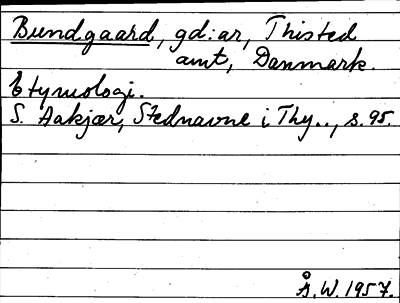 Bundgaard, gd:ar, Thisted
amt, Danmark.
Etymologi.
S. Aakjær, Stednavne i Thy.., s. 95.
Å. W. 1957.